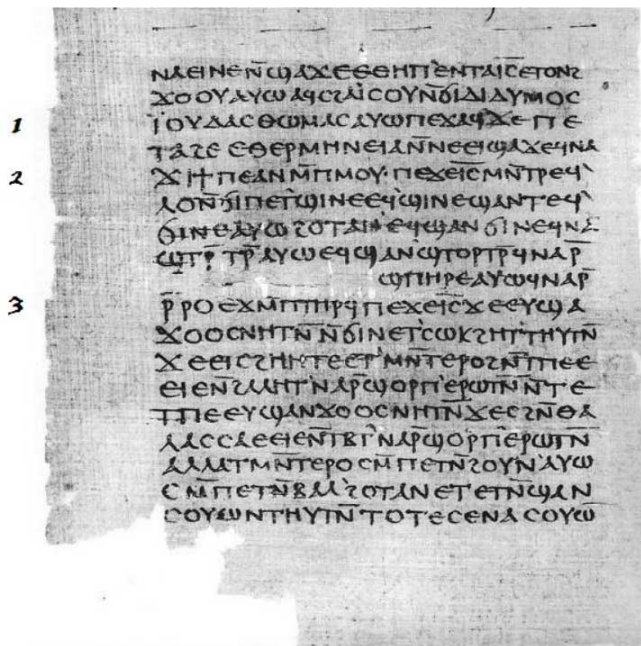 ⲛⲁⲉⲓⲛⲉⲛ̄ϣⲁϫⲉⲉⲑⲏⲡ'ⲉⲛⲧⲁⲓ̅ⲥ̅ⲉⲧⲟⲛϩ
ϫⲟⲟⲩⲁⲩⲱⲁϥⲥϩⲁⲓⲥⲟⲩⲛ̄ϭⲓⲇⲓⲇⲩⲙⲟⲥ
1 ⲓ̈ⲟⲩⲇⲁⲥⲑⲱⲙⲁⲥⲁⲩⲱⲡⲉϫⲁϥϫⲉⲡⲉ
ⲧⲁϩⲉⲉⲑⲉⲣⲙⲏⲛⲉⲓⲁⲛ̄ⲛⲉⲉⲓϣⲁϫⲉϥⲛⲁ
2 ϫⲓϯⲡⲉⲁⲛⲙ̄ⲡⲙⲟⲩ·ⲡⲉϫⲉⲓ̅ⲥ̅ⲙⲛ̄ⲧⲣⲉϥ'
ⲗⲟⲛ̄ϭⲓⲡⲉⲧ'ϣⲓⲛⲉⲉϥϣⲓⲛⲉϣⲁⲛⲧⲉϥ'
ϭⲓⲛⲉⲁⲩⲱϩⲟⲧⲁⲛⲉϥϣⲁⲛϭⲓⲛⲉϥⲛⲁ
ϣⲧⲣ̄ⲧⲣ̄ⲁⲩⲱⲉϥϣⲁⲛϣⲧⲟⲣⲧⲣ̄ϥⲛⲁⲣ̄
ϣⲡⲏⲣⲉⲁⲩⲱϥⲛⲁⲣ̄
3 ⲣ̄ⲣⲟⲉϫⲙ̄ⲡⲧⲏⲣϥⲡⲉϫⲉⲓ̅ⲥ̅ϫⲉⲉⲩϣⲁ
ϫⲟⲟⲥⲛⲏⲧⲛ̄ⲛ̄ϭⲓⲛⲉⲧ'ⲥⲱⲕϩⲏⲧ'ⲧⲏⲩⲧⲛ̄
ϫⲉⲉⲓⲥϩⲏⲏⲧⲉⲉⲧ'ⲙⲛ̄ⲧⲉⲣⲟϩⲛ̄ⲧⲡⲉⲉ
ⲉⲓⲉⲛϩⲁⲗⲏⲧ'ⲛⲁⲣ̄ϣⲟⲣⲡ'ⲉⲣⲱⲧⲛ̄ⲛ̄ⲧⲉ
ⲧⲡⲉⲉⲩϣⲁⲛϫⲟⲟⲥⲛⲏⲧⲛ̄ϫⲉⲥϩⲛ̄ⲑⲁ
ⲗⲁⲥⲥⲁⲉⲉⲓⲉⲛ̄ⲧⲃⲧ'ⲛⲁⲣ̄ϣⲟⲣⲡ'ⲉⲣⲱⲧⲛ̄
ⲁⲗⲗⲁⲧⲙⲛ̄ⲧⲉⲣⲟⲥⲙ̄ⲡⲉⲧⲛ̄ϩⲟⲩⲛ'ⲁⲩⲱ
ⲥⲙ̄ⲡⲉⲧⲛ̄ⲃⲁⲗ'ϩⲟⲧⲁⲛⲉⲧⲉⲧⲛ̄ϣⲁⲛ
ⲥⲟⲩⲱⲛⲧⲏⲩⲧⲛ̄ⲧⲟⲧⲉⲥⲉⲛⲁⲥⲟⲩⲱ